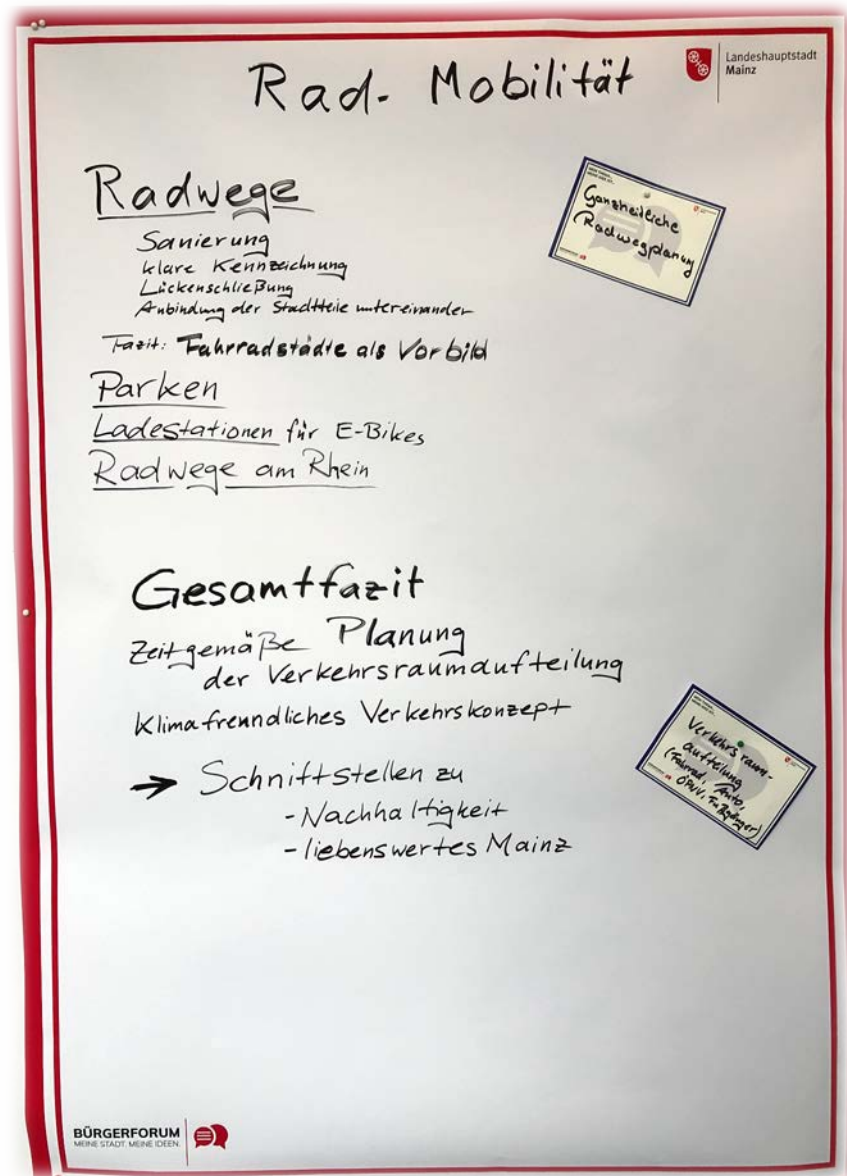 Rad- Mobilität
Landeshauptstadt
Mainz
Radwege
Sanierung
klare Kennzeichnung
Lückenschließung
Anbindung der Stadtteile untereinander
Fazit: Fahrradstädte als Vorbild
Parken
Ladestationen für E-Bikes
Radwege am Rhein
Ganzheitliche
Radwegplanung
Gesamtfazit
Zeitgemäße Planung
der Verkehrsraumaufteilung
Klimafreundliches Verkehrskonzept
→ Schnittstellen zu
- Nachhaltigkeit
- liebenswertes Mainz
Verkehrsraum-
aufteilung
(Fahrrad, Auto,
ÖPNV, Fußgänger)
BÜRGERFORUM
MEINE STADT. MEINE IDEEN.